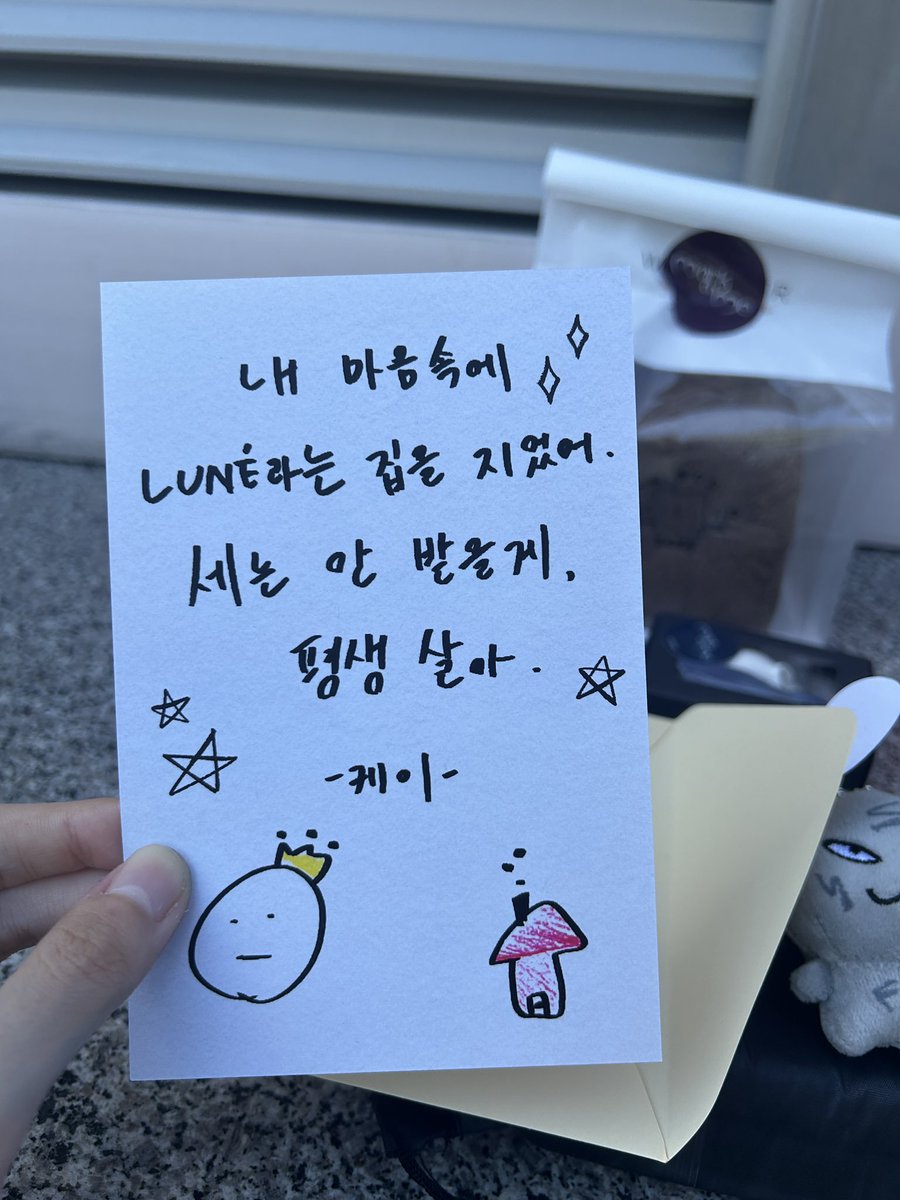 내 마음속에
LUNÉ라는 집을 지었어.
세는 안 받을게,
평생 살아.
-케이-